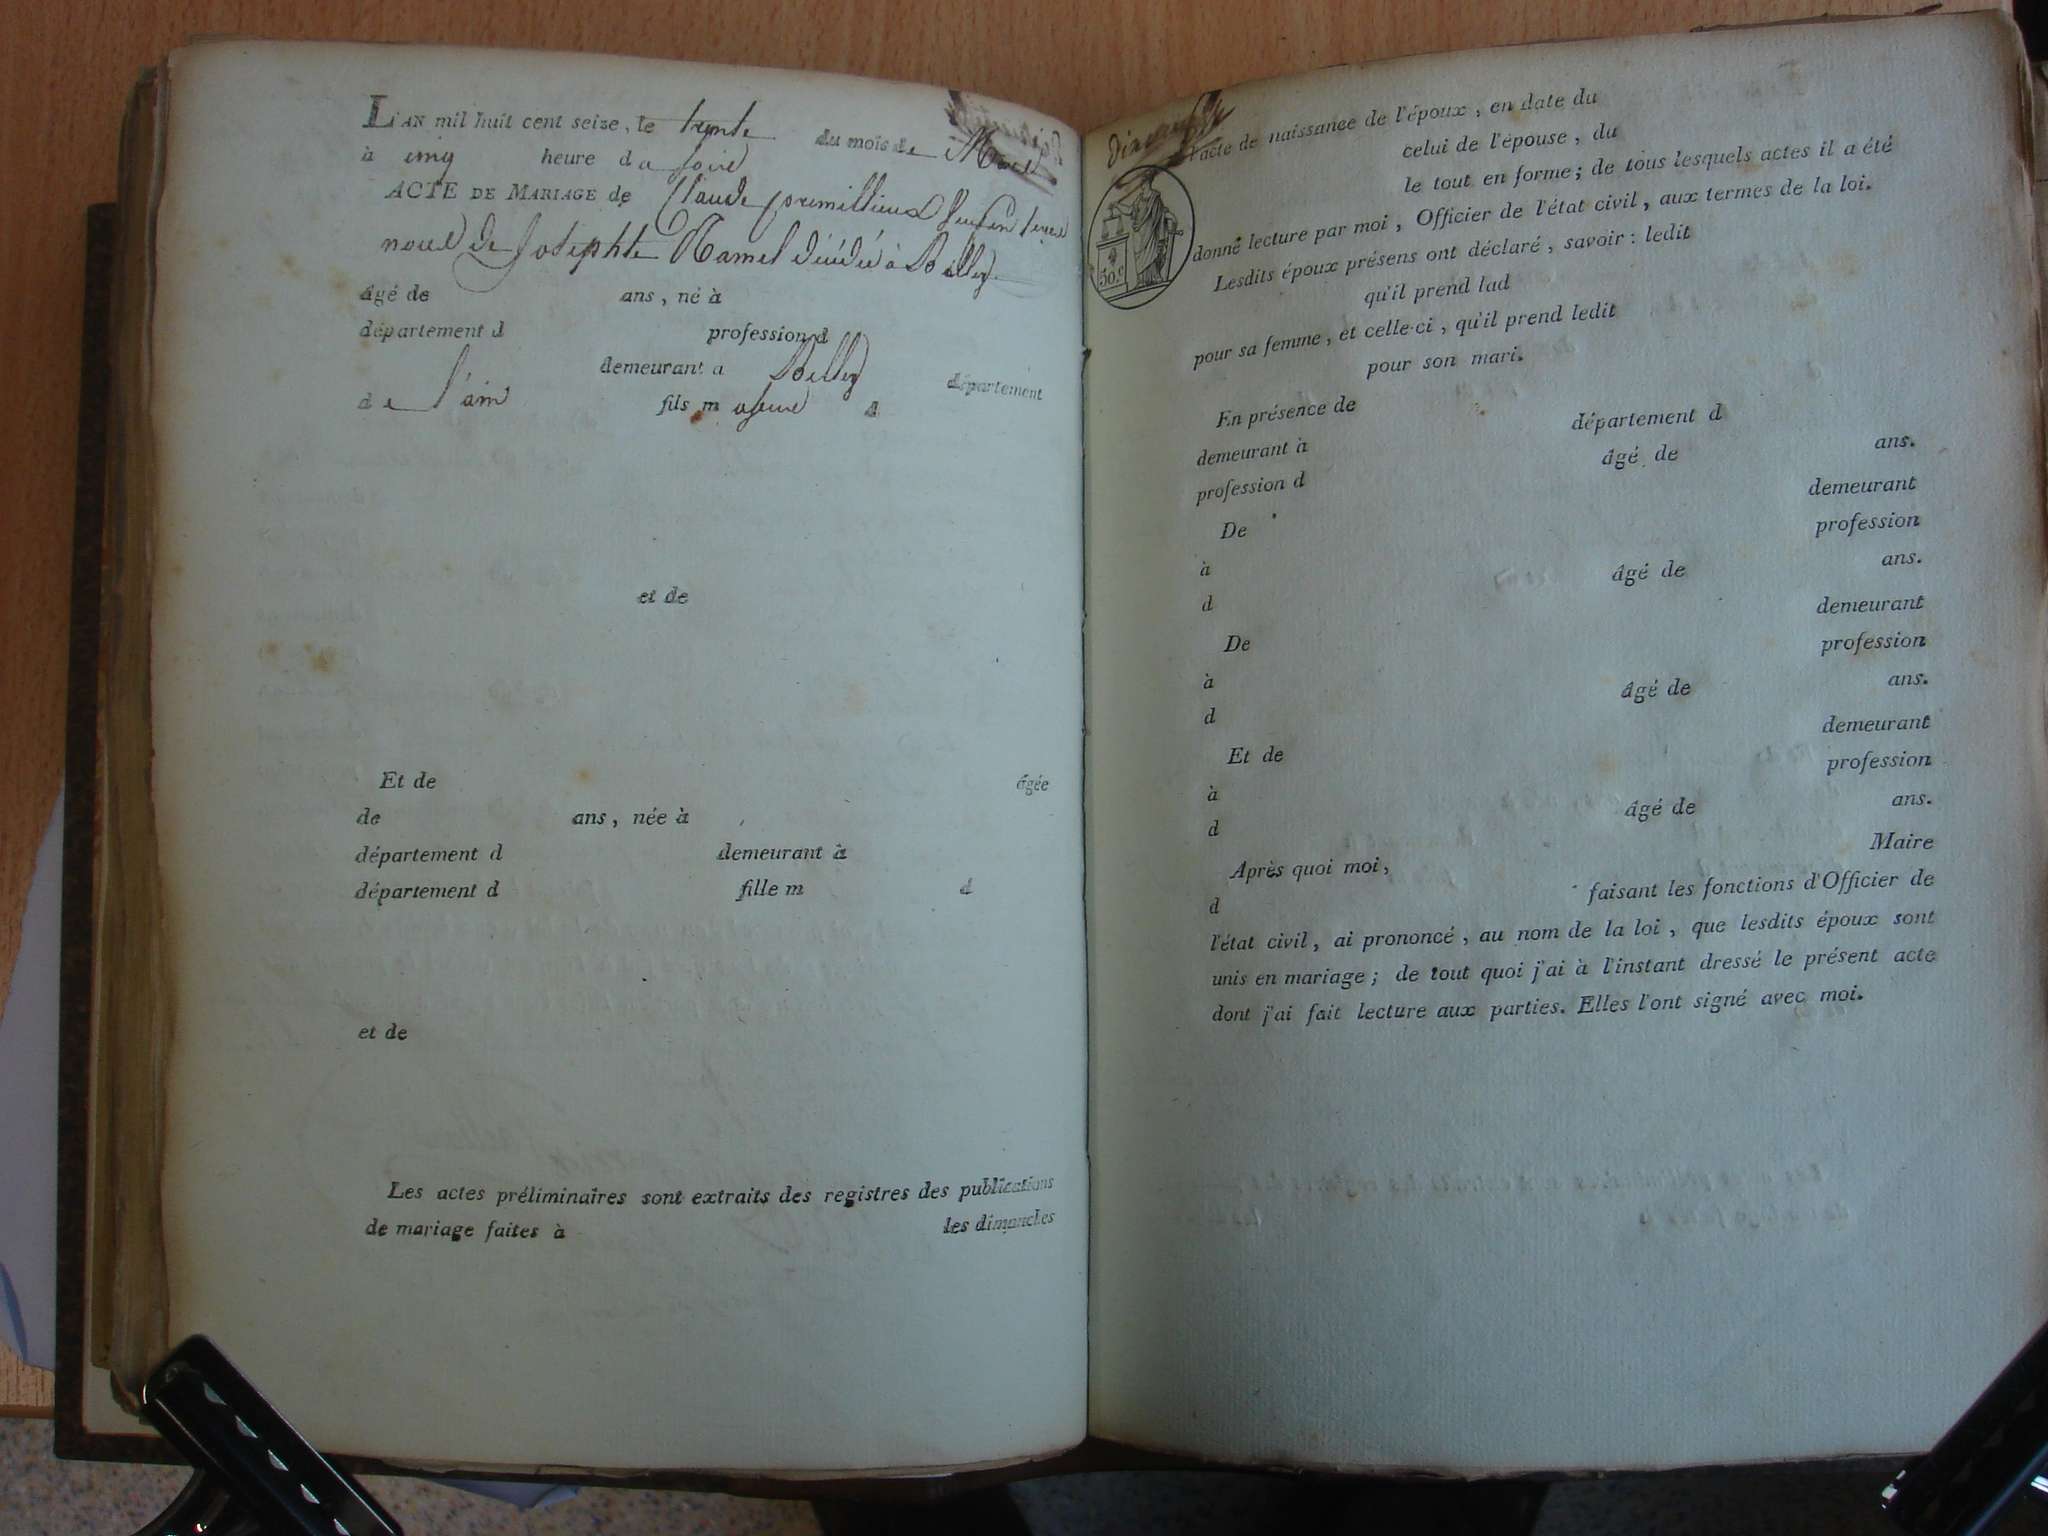 L'AN mil huit cent seize, le trente du mois de Mars
à cinq heure du soir
ACTE DE MARIAGE de Claude
de Josephte Ramel décédé à Belley
âgé de ans, né à
département d profession d
demeurant a Belley département
de l'ain fils m d
et de
Et de âgée
de ans, née à
département d demeurant à
département d fille m d
et de
Les actes préliminaires sont extraits des registres des publications
de mariage faites à les dimanches
l'acte de naissance de l'époux, en date du
celui de l'épouse, du
le tout en forme; de tous lesquels actes il a été
donné lecture par moi, Officier de l'état civil, aux termes de la loi.
Lesdits époux présens ont déclaré, savoir: ledit
qu'il prend lad
pour sa femme, et celle-ci, qu'il prend ledit
pour son mari.
50.c
En présence de
demeurant à département d
profession d âgé de ans.
De demeurant
à profession
d âgé de ans.
De demeurant
à profession
d âgé de ans.
Et de demeurant
à profession
d âgé de ans.
Après quoi moi, Maire
d faisant les fonctions d'Officier de
l'état civil, ai prononcé, au nom de la loi, que lesdits époux sont
unis en mariage; de tout quoi j'ai à l'instant dressé le présent acte
dont j'ai fait lecture aux parties. Elles l'ont signé avec moi.